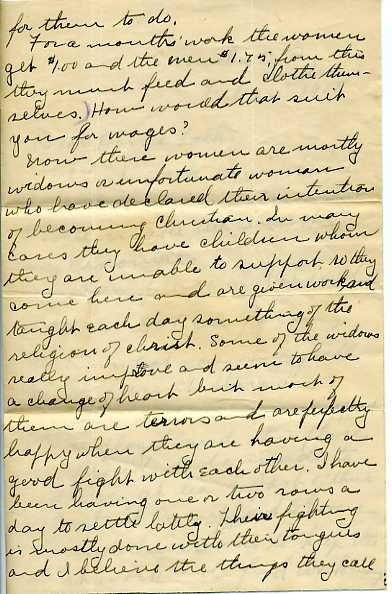 for them to do.
For a months' work the women
get $1.00 and the men $1.75, from this
they must feed and clothe them-
selves. How would that suit
you for wages?
Now these women are mostly
widows or unfortunate woman
who have declared their intention
of becoming Christian. In many
cases they have children whom
they are unable to support, so they
come here and are given work, and
taught each day something of the
religion of christ. Some of the widows
really improve and seem to have
a change of heart but most of
them are terrors and are perfectly
happy when they are having a
good fight with each other. I have
been having one or two rows a
day to settle lately. Their fighting
is mostly done with their tongues
and I believe the things they call